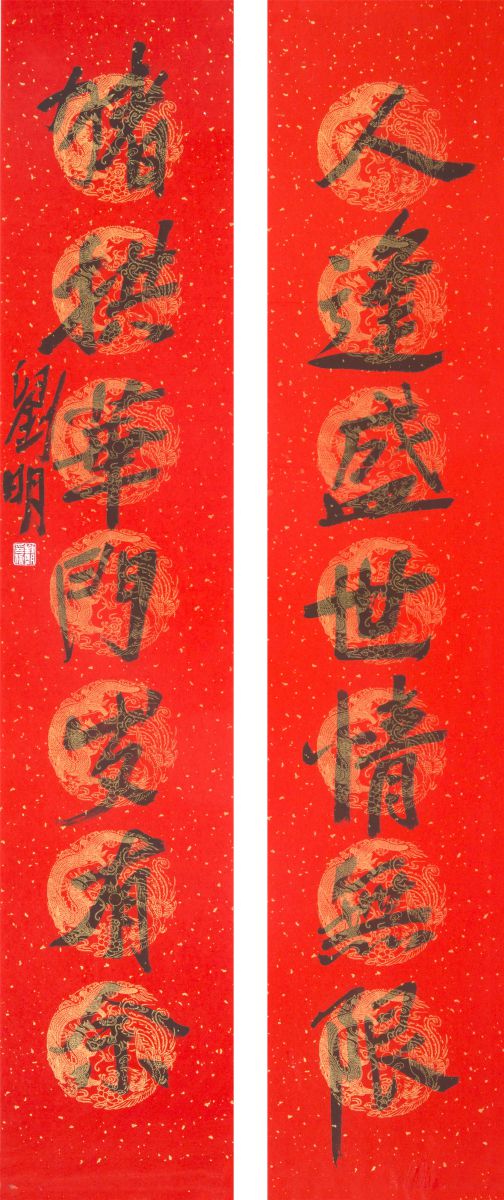 人逢盛世情無限
猪拱華門岁有余
劉明